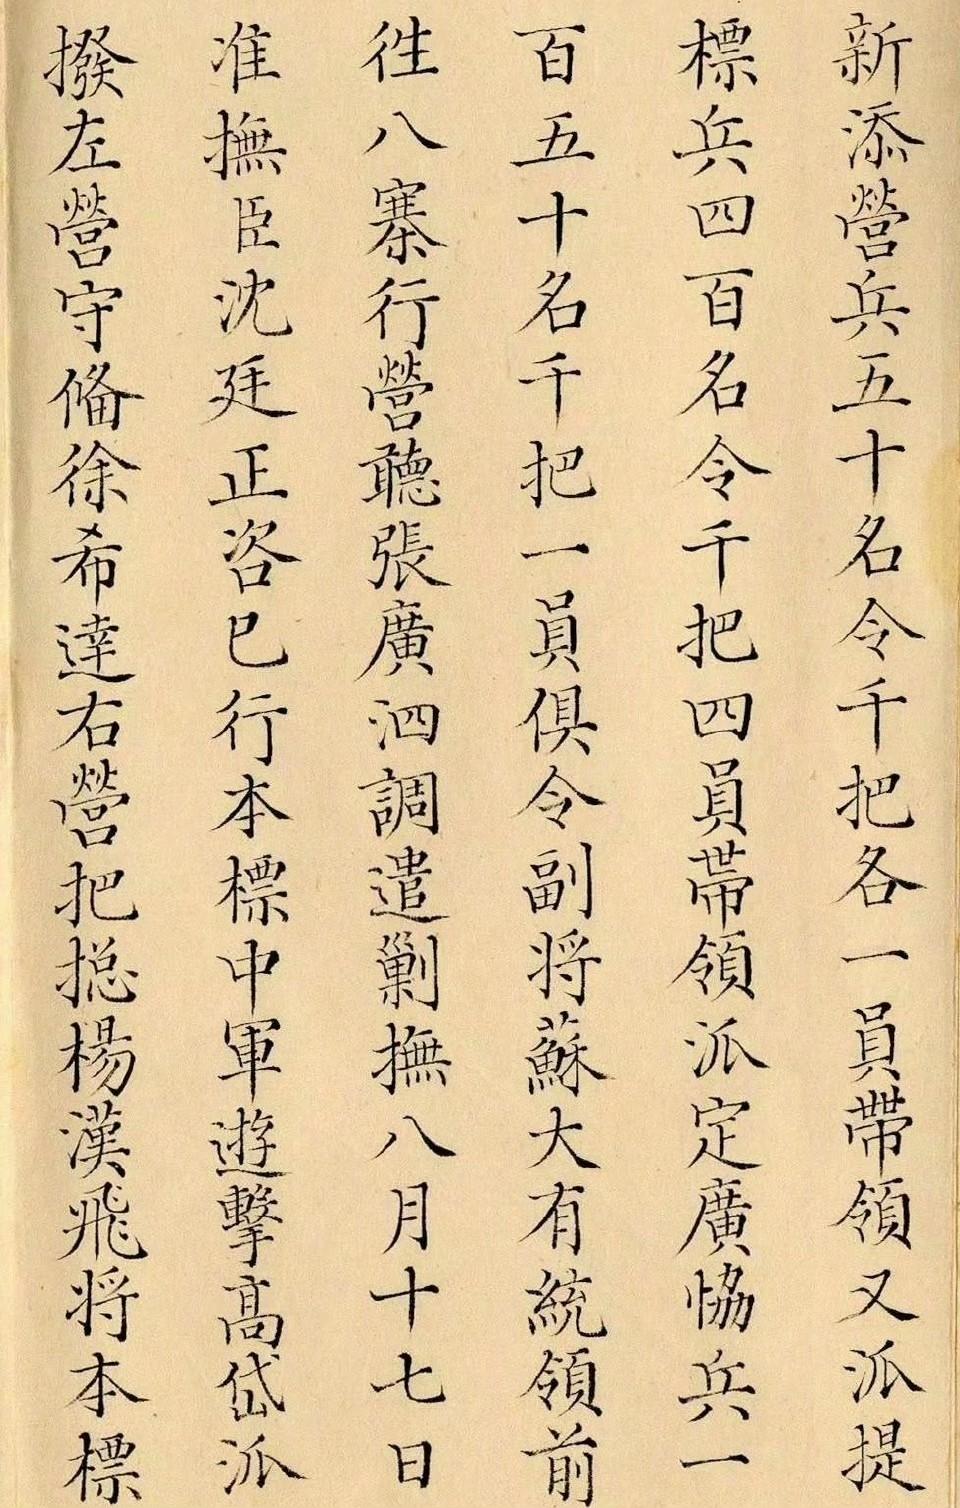 新添營兵五十名令千把各一員帶領又派提
標兵四百名令千把四員帶領派定廣恊兵一
百五十名千把一員俱令副将蘇大有統領前
徃八寨行營聽張廣泗調遣剿撫八月十七日
准撫臣沈廷正咨已行本標中軍遊擊髙岱派
撥左營守俻徐希逹右營把搃楊漢飛将本標